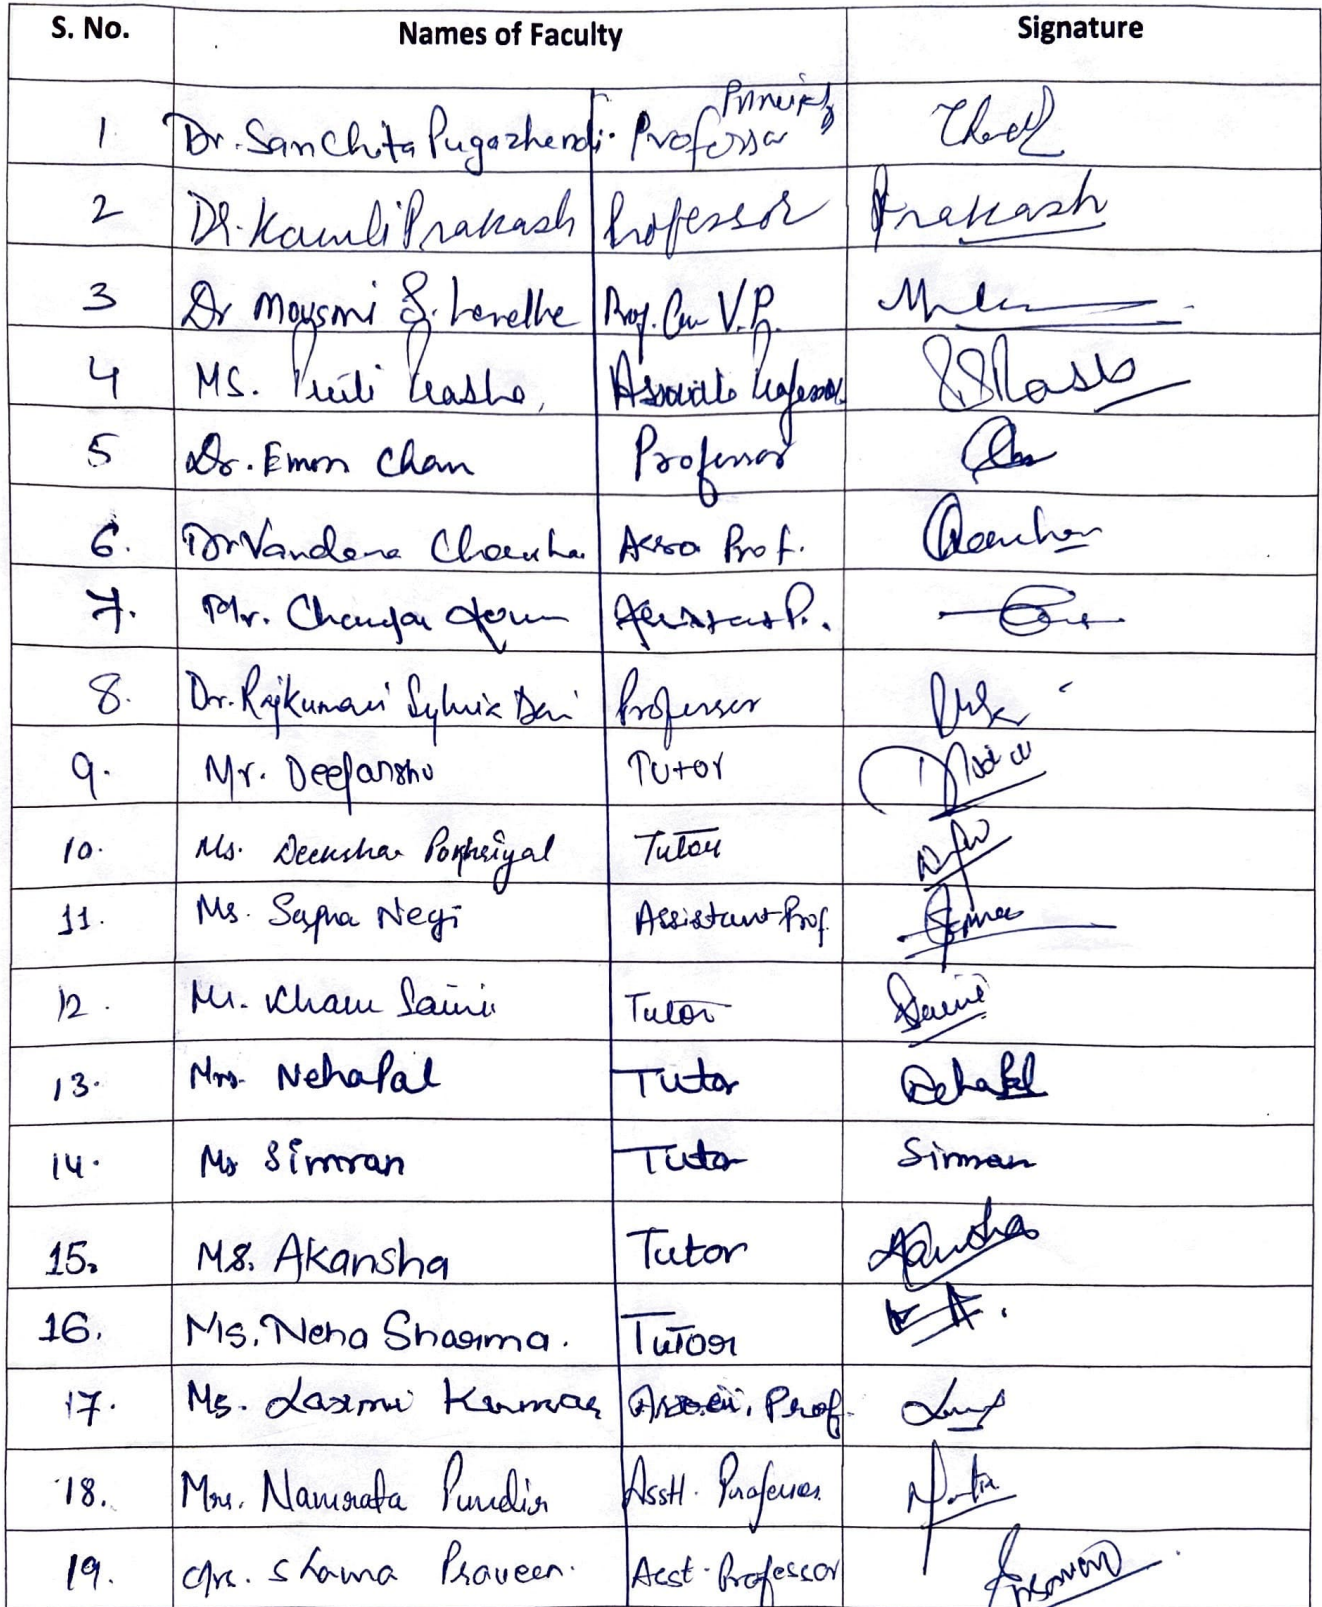 S. No. Names of Faculty Signature
1 Dr. Sanchita Pugazhendi. Professor Principal
2 Dr. Kamli Prakash Professor Prakash
3 Dr Mousmi S. Prof. Cum V.P.
4 MS. Priti Associate Professor
5 Dr. Emon Chan Professor
6. Dr Vandana Chauha Asso Prof. Chauhan
7. Mr. Assistant P.
8. Dr. Rajkumari Sylvia Devi Professor
9. Mr. Deepanshu Tutor
10. Ms. Deeksha Pokhriyal Tutor
11. Ms. Sapna Negi Assistant Prof.
12. Saini Tutor Saini
13. Mrs. Neha Pal Tutor Neha Pal
14. Ms Simran Tutor Simran
15. MS. Akansha Tutor
16. Ms. Neha Sharma. Tutor
17. Ms. Laxmi Kumar Prof.
18. Mrs. Namrata Pundir Asstt. Professor
19. Mrs. Shama Praveen. Asst. Professor